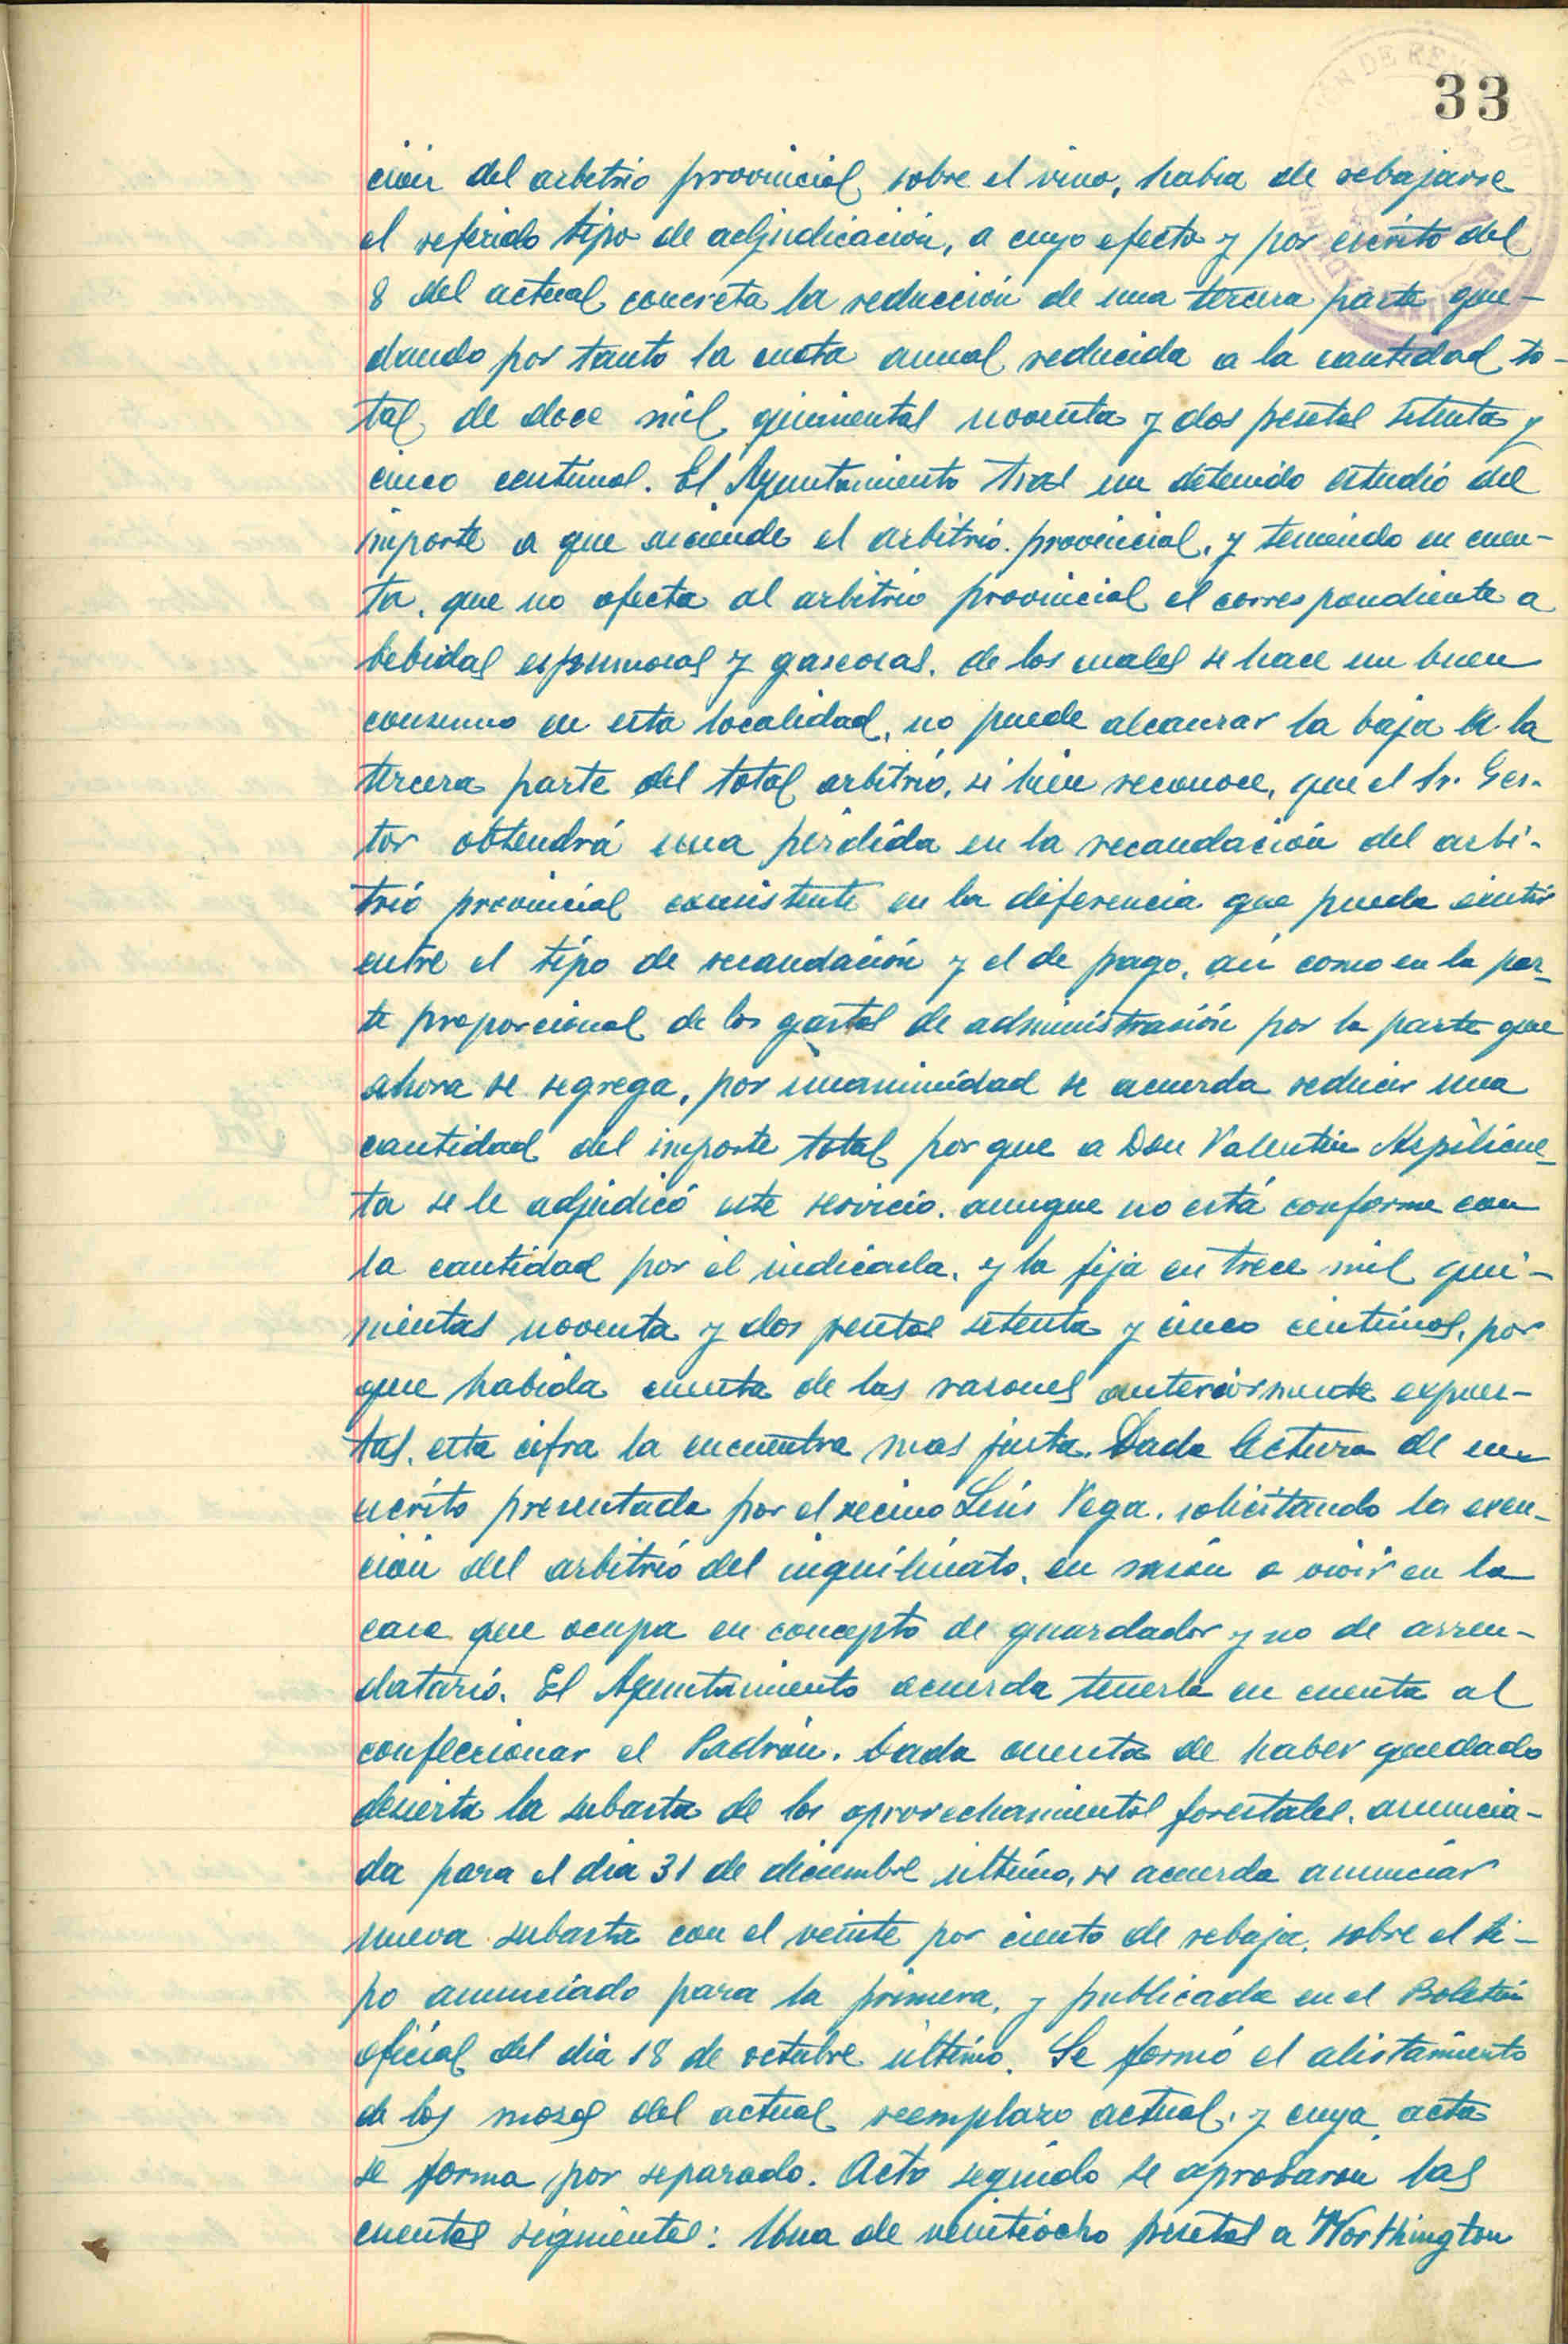 33
ción del arbitrio provincial sobre el vino, habia de rebajarse
el referido tipo de adjudicación, a cuyo efecto y por escrito del
8 del actual concreta la reducción de una tercera parte que-
dando por tanto la cuota anual reducida a la cantidad to-
tal de doce mil quinientas noventa y dos pesetas setenta y
cinco centimos. El Ayuntamiento tras un detenido estudio del
importe a que asciende el arbitrio provincial, y teniendo en cuen-
ta, que no afecta al arbitrio provincial el correspondiente a
bebidas espumosas y gaseosas, de los cuales se hace un buen
consumo en esta localidad, no puede alcanzar la baja a la
tercera parte del total arbitrio, si bien reconoce, que el Sr. Ges-
tor obtendrá una pérdida en la recaudación del arbi-
trio provincial consistente en la diferencia que pueda existir
entre el tipo de recaudación y el de pago, asi como en la par-
te proporcional de los gastos de administrasión por la parte que
ahora se segrega, por unanimidad se acuerda reducir una
cantidad del importe total por que a Don Valentin Azpilicue-
ta se le adjudicó este servicio, aunque no está conforme con
la cantidad por él indicada, y la fija en trece mil qui-
nientas noventa y dos pesetas setenta y cinco centimos, por
que habida cuenta de las rasones anteriormente expues-
tas, esta cifra la encuentra mas justa. Dada lectura de un
escrito presentado por el vecino Luis Vega, solicitando la exen-
ción del arbitrio del inquilinato, en rasón a vivir en la
casa que ocupa en concepto de guardador y no de arren-
datario. El Ayuntamiento acuerda tenerlo en cuenta al
confeccionar el Padrón. Dada cuenta de haber quedado
desierta la subasta de los aprovechamientos forestales, anuncia-
da para el dia 31 de diciembre último, se acuerda anunciar
nueva subasta con el veinte por ciento de rebaja, sobre el ti-
po anunciado para la primera, y publicada en el Boletin
oficial del dia 18 de octubre último. Se formó el alistamiento
de los mosos del actual reemplazo actual, y cuya acta
se forma por separado. Acto seguido se aprobaron las
cuentas siguientes: Una de veintiocho pesetas a Worthington